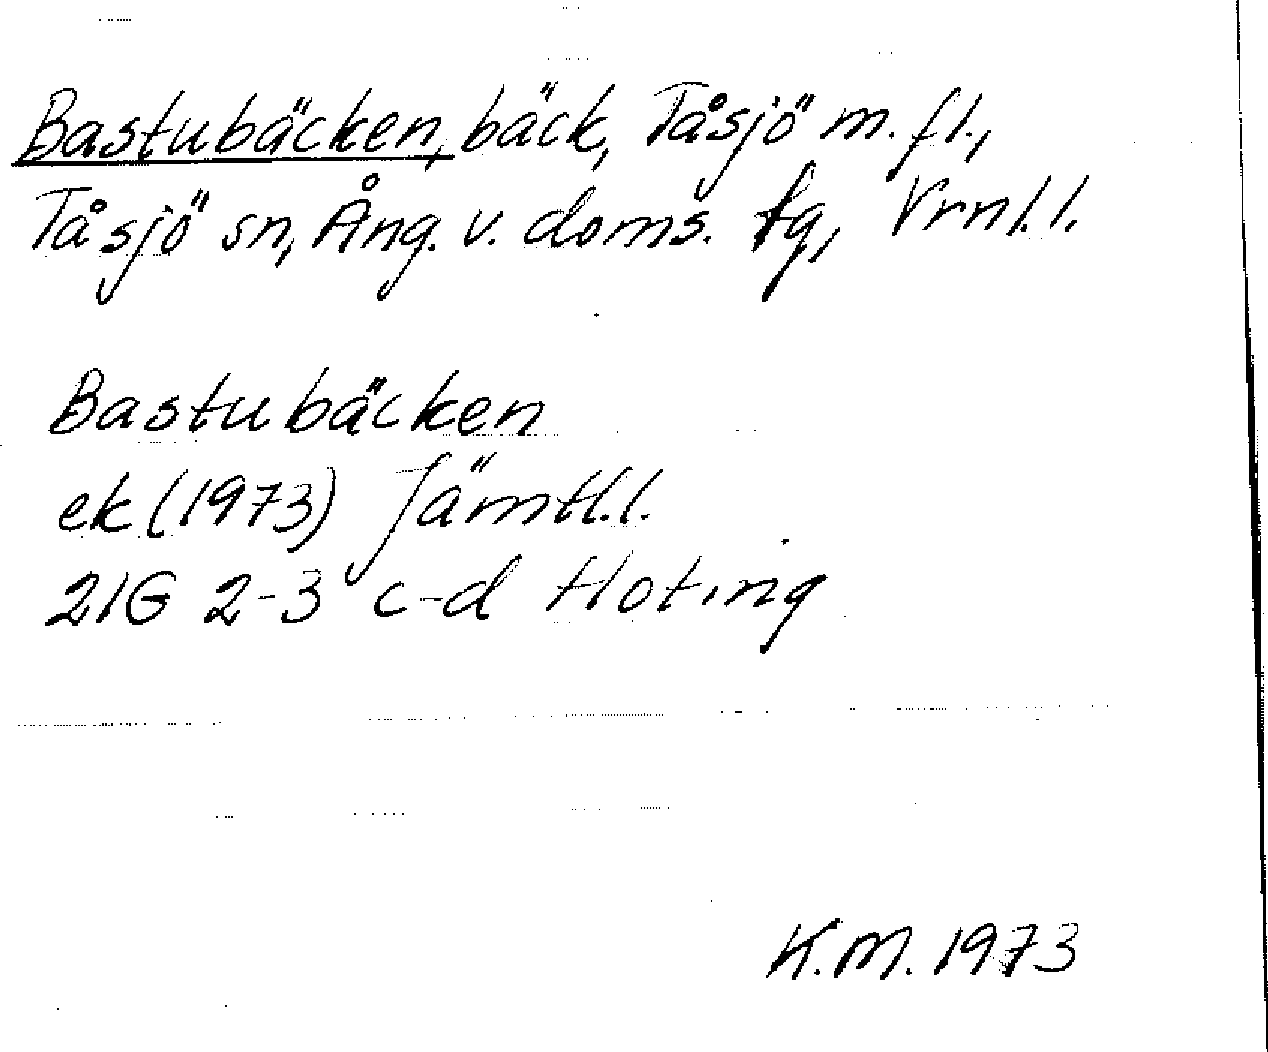 Bastubäcken, bäck, Tåsjö m.fl.,
Tåsjö sn, Ång. v. doms. fg, Vrnl.l.
Bastubäcken
ek (1973) Jämtl.l.
21G 2-3 c-d Hoting
K.M. 1973